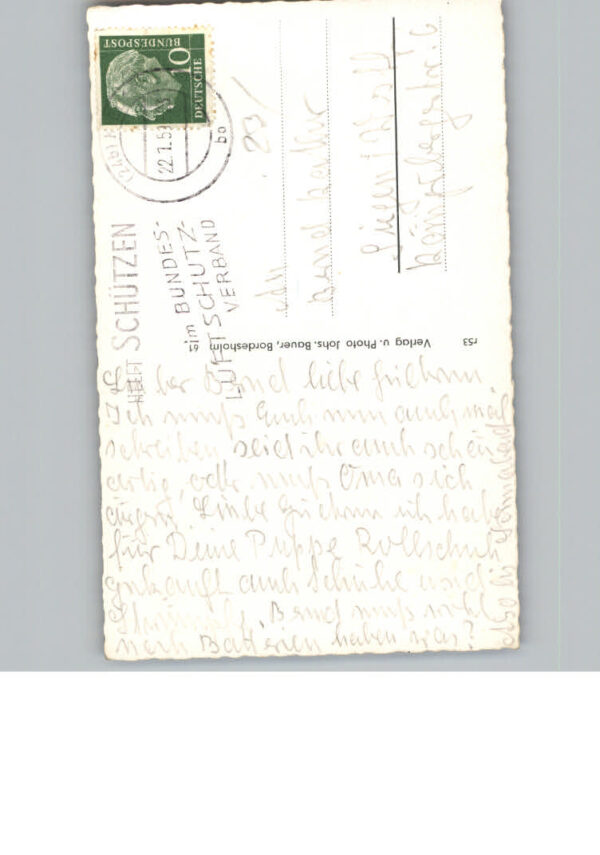 DEUTSCHE
BUNDESPOST
10
(24b)
22.7.5
bo
HELFT SCHÜTZEN
im BUNDES-
LUFTSCHUTZ-
VERBAND
23
An
Bernd
Siegen / Westf
Königsbergstr. 6
r53 Verlag u. Photo Johs. Bauer, Bordesholm 61
Lieber Bernd liebe Gudrun
Ich muß Euch nun auch mal
schreiben seid ihr auch schön
artig, oder muß Oma sich
ärgern. Liebe Gudrun ich habe
für Deine Puppe Rollschuh
gekauft auch Schuhe und
Strümpfe, Bernd muß wohl
noch Batterien haben was?
Also bis Sonnabend